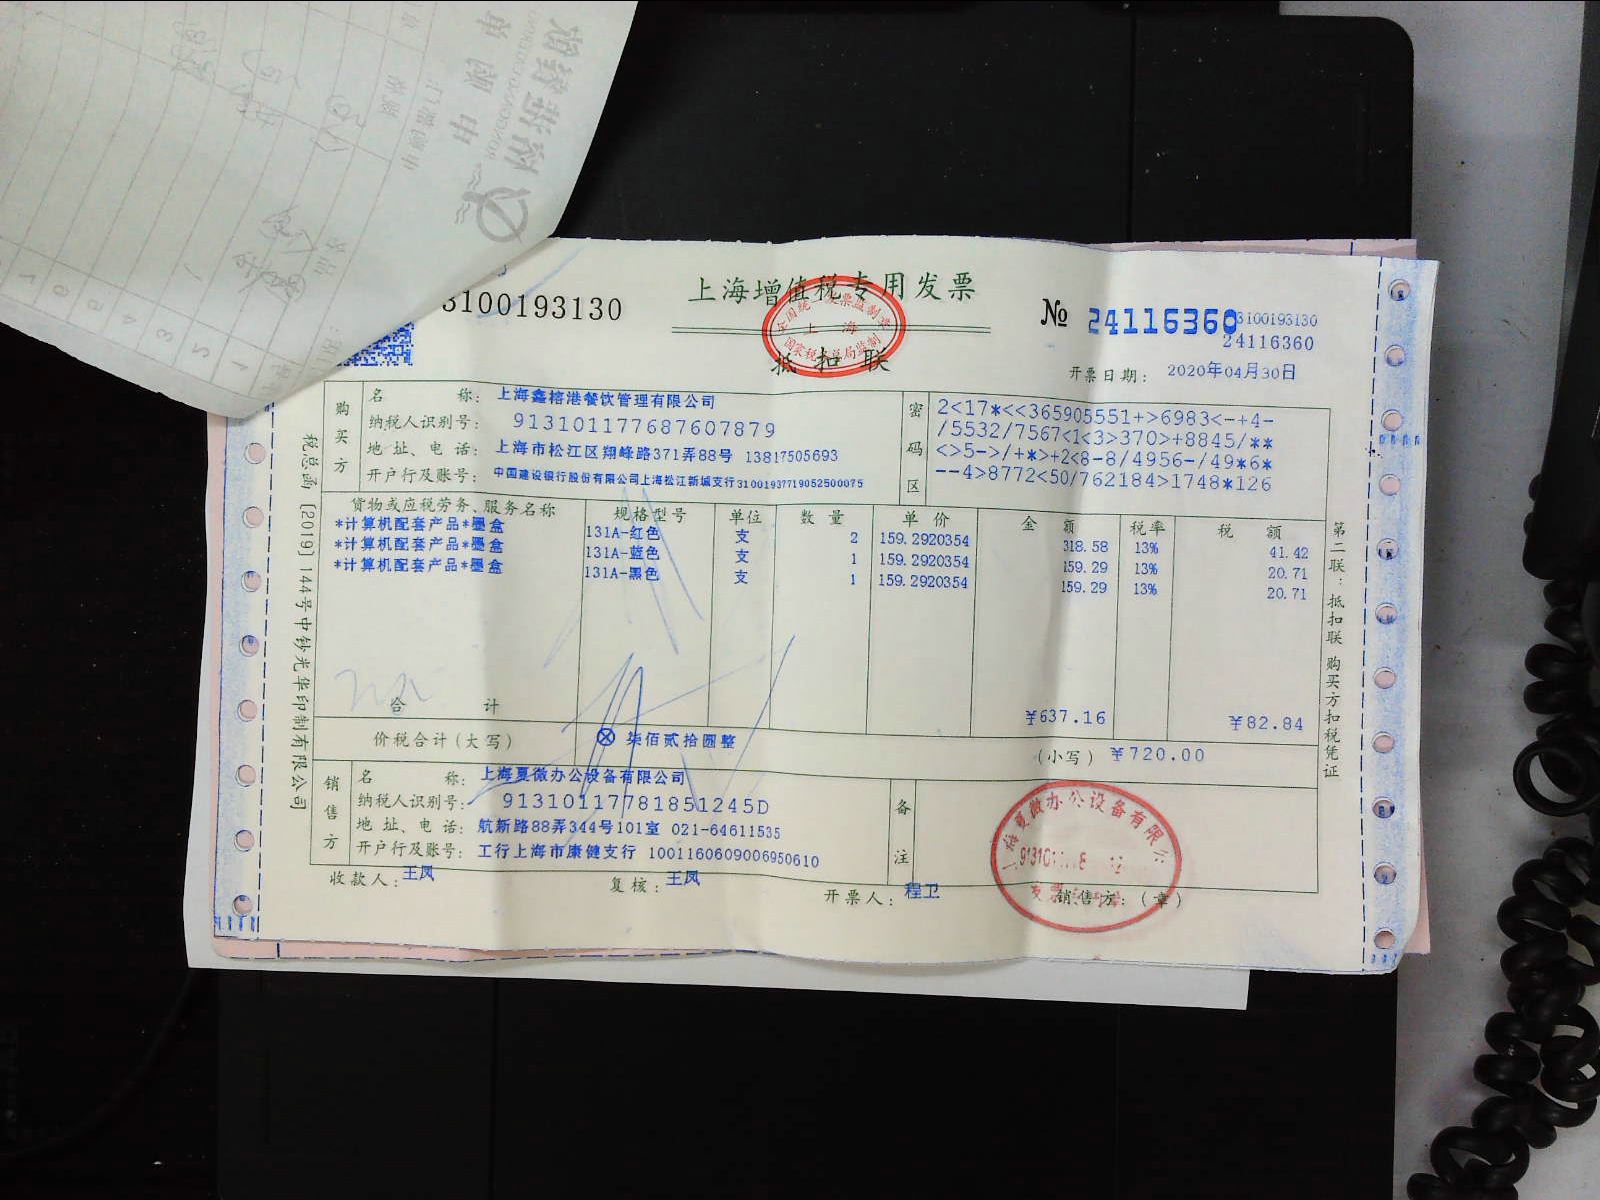 3100193130
上海增值税专用发票
抵扣联
全国统一发票监制章
上海
国家税务总局监制
№ 24116360
3100193130
24116360
开票日期: 2020年04月30日
购买方
名称: 上海鑫榕港餐饮管理有限公司
纳税人识别号: 913101177687607879
地址、电话: 上海市松江区翔峰路371弄88号 13817505693
开户行及账号: 中国建设银行股份有限公司上海松江新城支行31001937719052500075
密码区
2<17*<<365905551+>6983<-+4-
/5532/7567<1<3>370>+8845/**
<>5->/+*>+2<8-8/4956-/49*6*
--4>8772<50/762184>1748*126
货物或应税劳务、服务名称 规格型号 单位 数量 单价 金额 税率 税额
*计算机配套产品*墨盒 131A-红色 支 2 159.2920354 318.58 13% 41.42
*计算机配套产品*墨盒 131A-蓝色 支 1 159.2920354 159.29 13% 20.71
*计算机配套产品*墨盒 131A-黑色 支 1 159.2920354 159.29 13% 20.71
合计 ¥637.16 ¥82.84
价税合计(大写) ⊗ 柒佰贰拾圆整 (小写) ¥720.00
销售方
名称: 上海夏微办公设备有限公司
纳税人识别号: 91310117781851245D
地址、电话: 航新路88弄344号101室 021-64611535
开户行及账号: 工行上海市康健支行 1001160609006950610
备注
收款人: 王凤 复核: 王凤 开票人: 程卫 销售方:(章)
税总函[2019]144号中钞光华印制有限公司
第二联:抵扣联 购买方扣税凭证